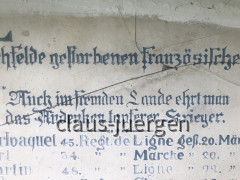 hfelde gestorbenen französische
"Auch im fremden Lande ehrt man
das Andenken tapferer Krieger.
claus-juergen
rloaquel 45. Regt. de Ligne gest. 20. Mär
rl 54. " " Marche " 20. "
artin 48. " " Ligne " 22. "